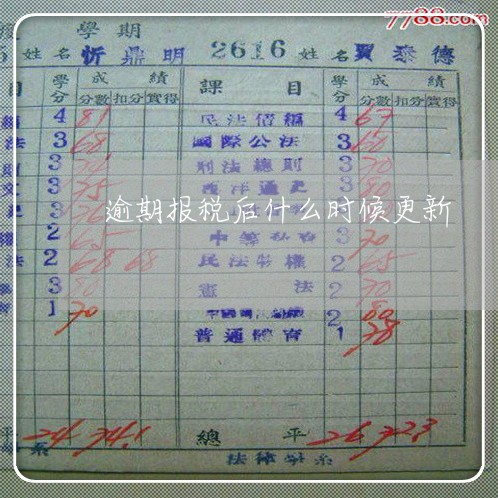 7788.com
學期
姓名 忻鼎明 2616 姓名 賈泰德
目 學分 成績 課目 學分 成績
分數 扣分 實得 分數 扣分 實得
4 81 民法債編 4 67
法 3 68 國際公法 3 60
3 刑法總則 3 70
3 75 西洋通史 3 80
逾期报税后什么时候更新
2 65 3 70
法 2 68 68 民法物權 2 65
3 80 憲法 2 70
1 70 2 80
普通體育 1 78
平 24 74.1 總平 26 72.3
系 法律學系